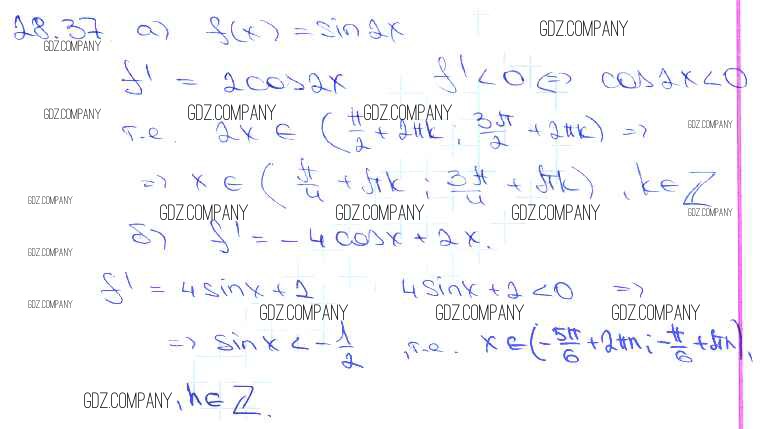 28.37 а) f(x) = sin2x GDZ.COMPANY
GDZ.COMPANY
f' = 2cos2x f' < 0 <=> cos2x < 0
GDZ.COMPANY GDZ.COMPANY GDZ.COMPANY
т.е. 2x ∈ (π/2 + 2πk ; 3π/2 + 2πk) => GDZ.COMPANY
=> x ∈ (π/4 + πk ; 3π/4 + πk), k ∈ Z
GDZ.COMPANY
GDZ.COMPANY GDZ.COMPANY GDZ.COMPANY GDZ.COMPANY
б) f' = -4cosx + 2x.
GDZ.COMPANY
f' = 4sinx + 2 4sinx + 2 < 0 =>
GDZ.COMPANY GDZ.COMPANY GDZ.COMPANY GDZ.COMPANY
=> sinx < -1/2 , т.е. x ∈ (-5π/6 + 2πn ; -π/6 + πn),
GDZ.COMPANY , n ∈ Z.